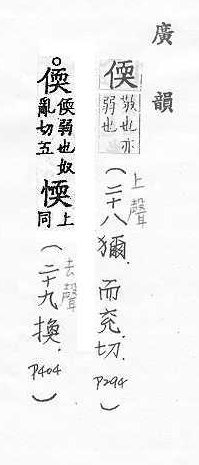 廣韻
偄 也亦
弱也
(上聲 二十八獮. 而兗切. P294)
。偄 偄弱也奴
亂切五
愞 上
同
(去聲 二十九換. P404)